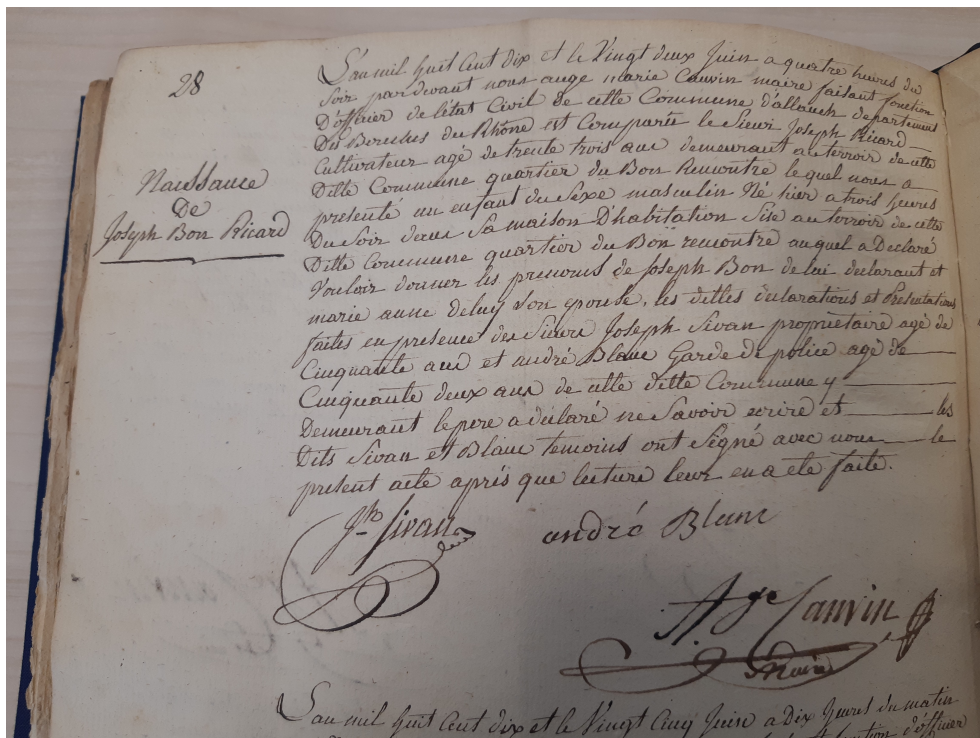 28
Naissance
De
Joseph Bon Ricard
L'an mil huit Cent dix et le Vingt deux Juin a quatre heures du
Soir pardevant nous ange marie Cauvin maire faisant fonction
D'officier de l'état Civil de cette Commune d'allauch departement
Du Bouches du Rhône est Comparû le Sieur Joseph Ricard
Cultivateur agé de trente trois ans demeurant au terroir de cette
Ditte Commune quartier du Bon Rencontre le quel nous a
presenté un enfant du Sexe masculin Né hier a trois heures
Du Soir dans Sa maison D'habitation Sise au terroir de cette
Ditte Commune quartier du Bon rencontre auquel a Declaré
Vouloir donner les prenoms de Joseph Bon de lui declarant et
marie anne deluy Son epouse, les dittes declarations et Presentations
faites en presence des Sieurs Joseph Sivan propriétaire agé de
Cinquante ans et andré Blanc Garde de police agé de
Cinquante deux ans de cette ditte Commune y
Demeurant le pere a déclaré ne Savoir ecrire et les
Dits Sivan et Blanc temoins ont Signé avec nous le
present acte aprés que lecture leur en a eté faite.
Jph Sivan
andré Blanc
Age Cauvin
maire
L'an mil huit Cent dix et le Vingt Cinq Juin a Dix heures du matin
d'officier